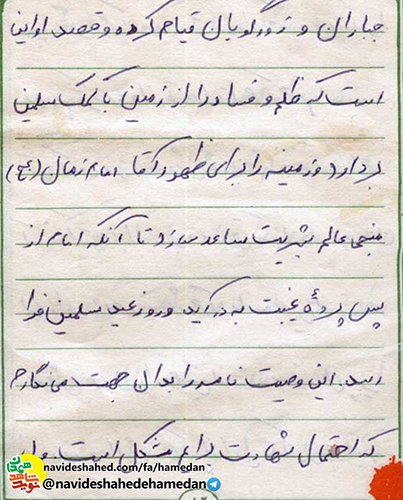 جباران و زورگویان قیام کرده و قصد او این
است که ظلم و فساد را از زمین با کمک مسلمین
بردارد و زمینه را برای ظهور آقا امام زمان (عج)
منجی عالم بشریت مساعد سازد تا آنکه امام از
پس پردهٔ غیبت به در آید و روز عید مسلمین فرا
رسد. این وصیت نامه را بدان جهت می‌نگارم
که احتمال شهادت برایم مشکل است
navideshahed.com/fa/hamedan
@navideshahedehamedan